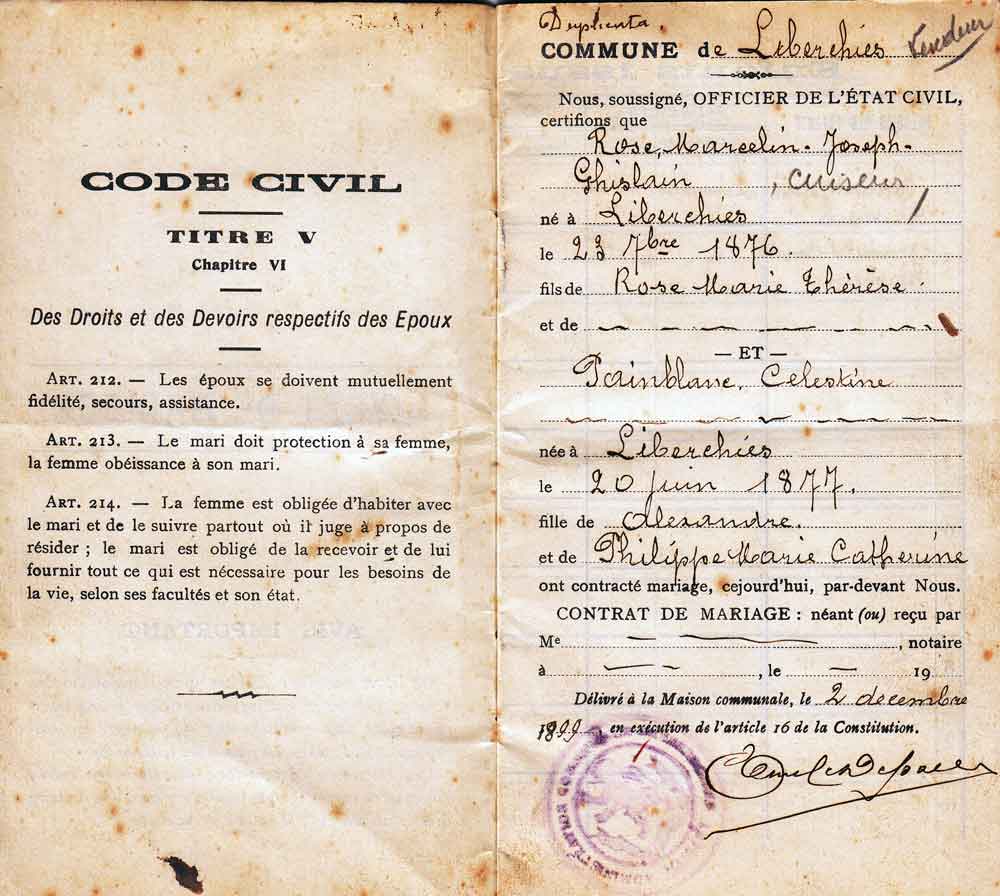 CODE CIVIL
TITRE V
Chapitre VI
Des Droits et des Devoirs respectifs des Epoux
ART. 212. — Les époux se doivent mutuellement
fidélité, secours, assistance.
ART. 213. — Le mari doit protection à sa femme,
la femme obéissance à son mari.
ART. 214. — La femme est obligée d'habiter avec
le mari et de le suivre partout où il juge à propos de
résider ; le mari est obligé de la recevoir et de lui
fournir tout ce qui est nécessaire pour les besoins de
la vie, selon ses facultés et son état.
Duplicata
COMMUNE de Liberchies
Nous, soussigné, OFFICIER DE L'ÉTAT CIVIL,
certifions que
Rose, Marcelin-Joseph-
Ghislain, cuiseur,
né à Liberchies
le 23 7bre 1876.
fils de Rose Marie Thérèse.
et de
— ET —
Painblanc, Celestine
née à Liberchies
le 20 juin 1877.
fille de Alexandre.
et de Philippe Marie Catherine
ont contracté mariage, cejourd'hui, par-devant Nous.
CONTRAT DE MARIAGE : néant (ou) reçu par
Me — , notaire
à — , le — 19
Délivré à la Maison communale, le 2 decembre
1899, en exécution de l'article 16 de la Constitution.